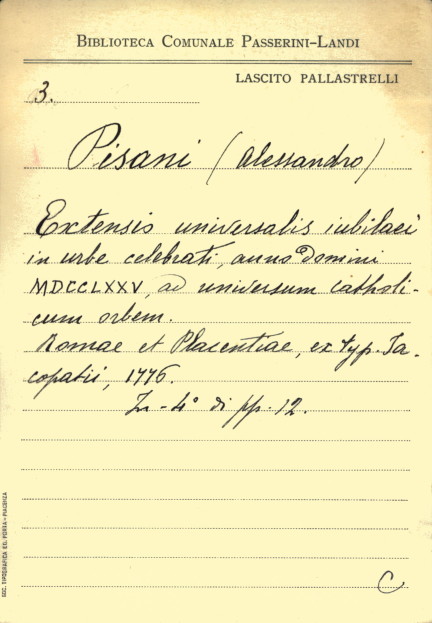 BIBLIOTECA COMUNALE PASSERINI-LANDI
LASCITO PALLASTRELLI
3.
Pisani (Alessandro)
Extensio universalis iubilaei
in urbe celebrati, anno Domini
MDCCLXXV, ad universum catholi-
cum orbem.
Romae et Placentiae, ex typ. Ja-
copatii, 1776.
In-4° di pp. 12.
SOC. TIPOGRAFICA ED. PORTA - PIACENZA
C